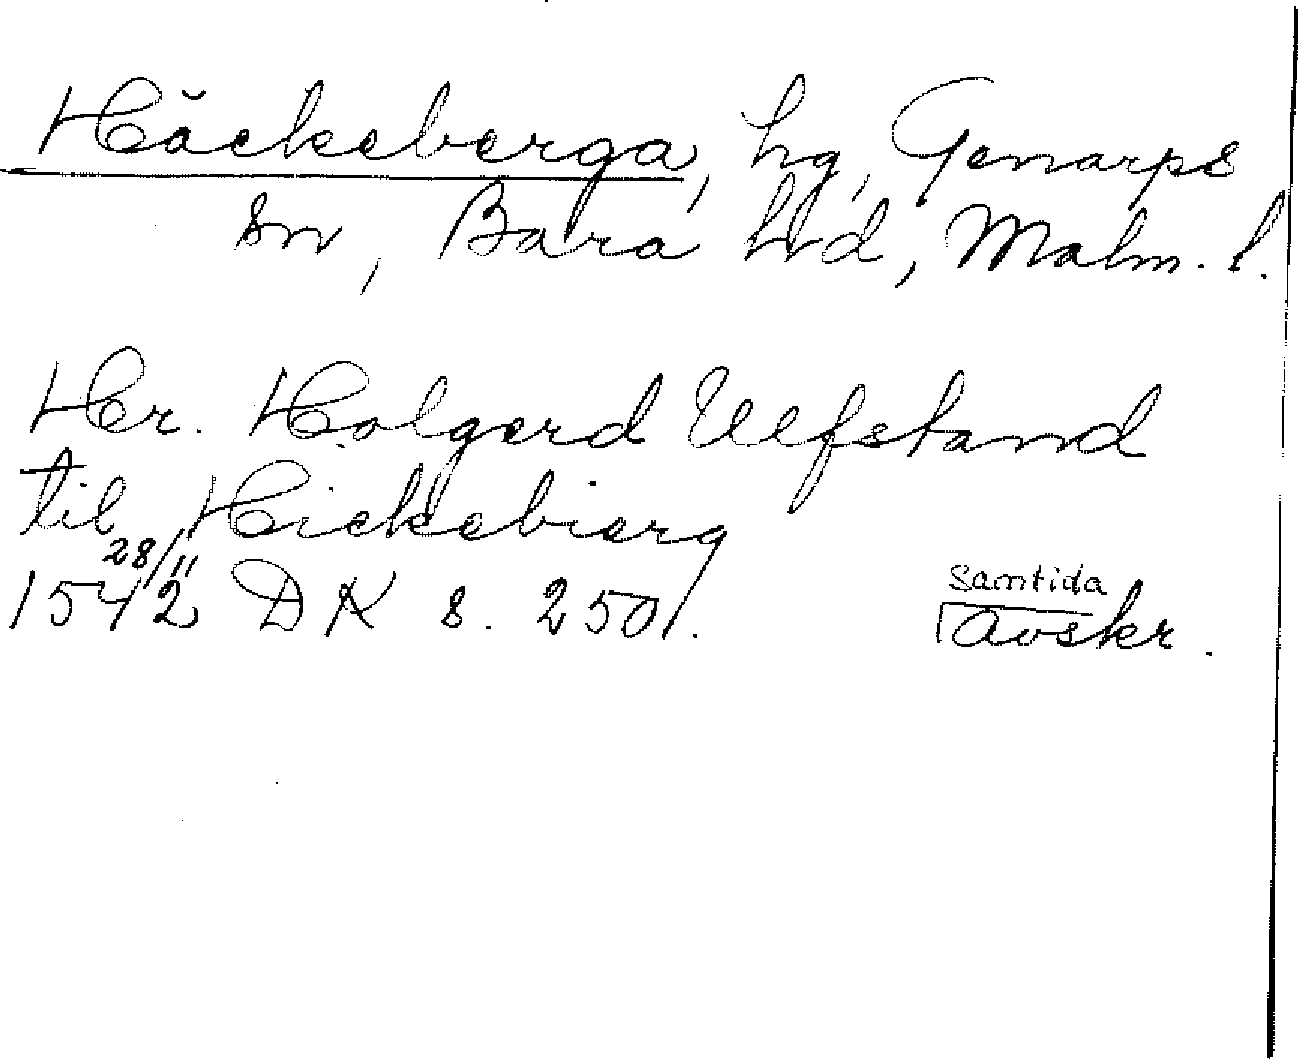 Häckeberga, hg, Genarps
sn, Bara hd, Malm. l.
Hr. Holgerd Ulfstand
til Hickebierg
1542 28/11 DK s. 250. samtida avskr.